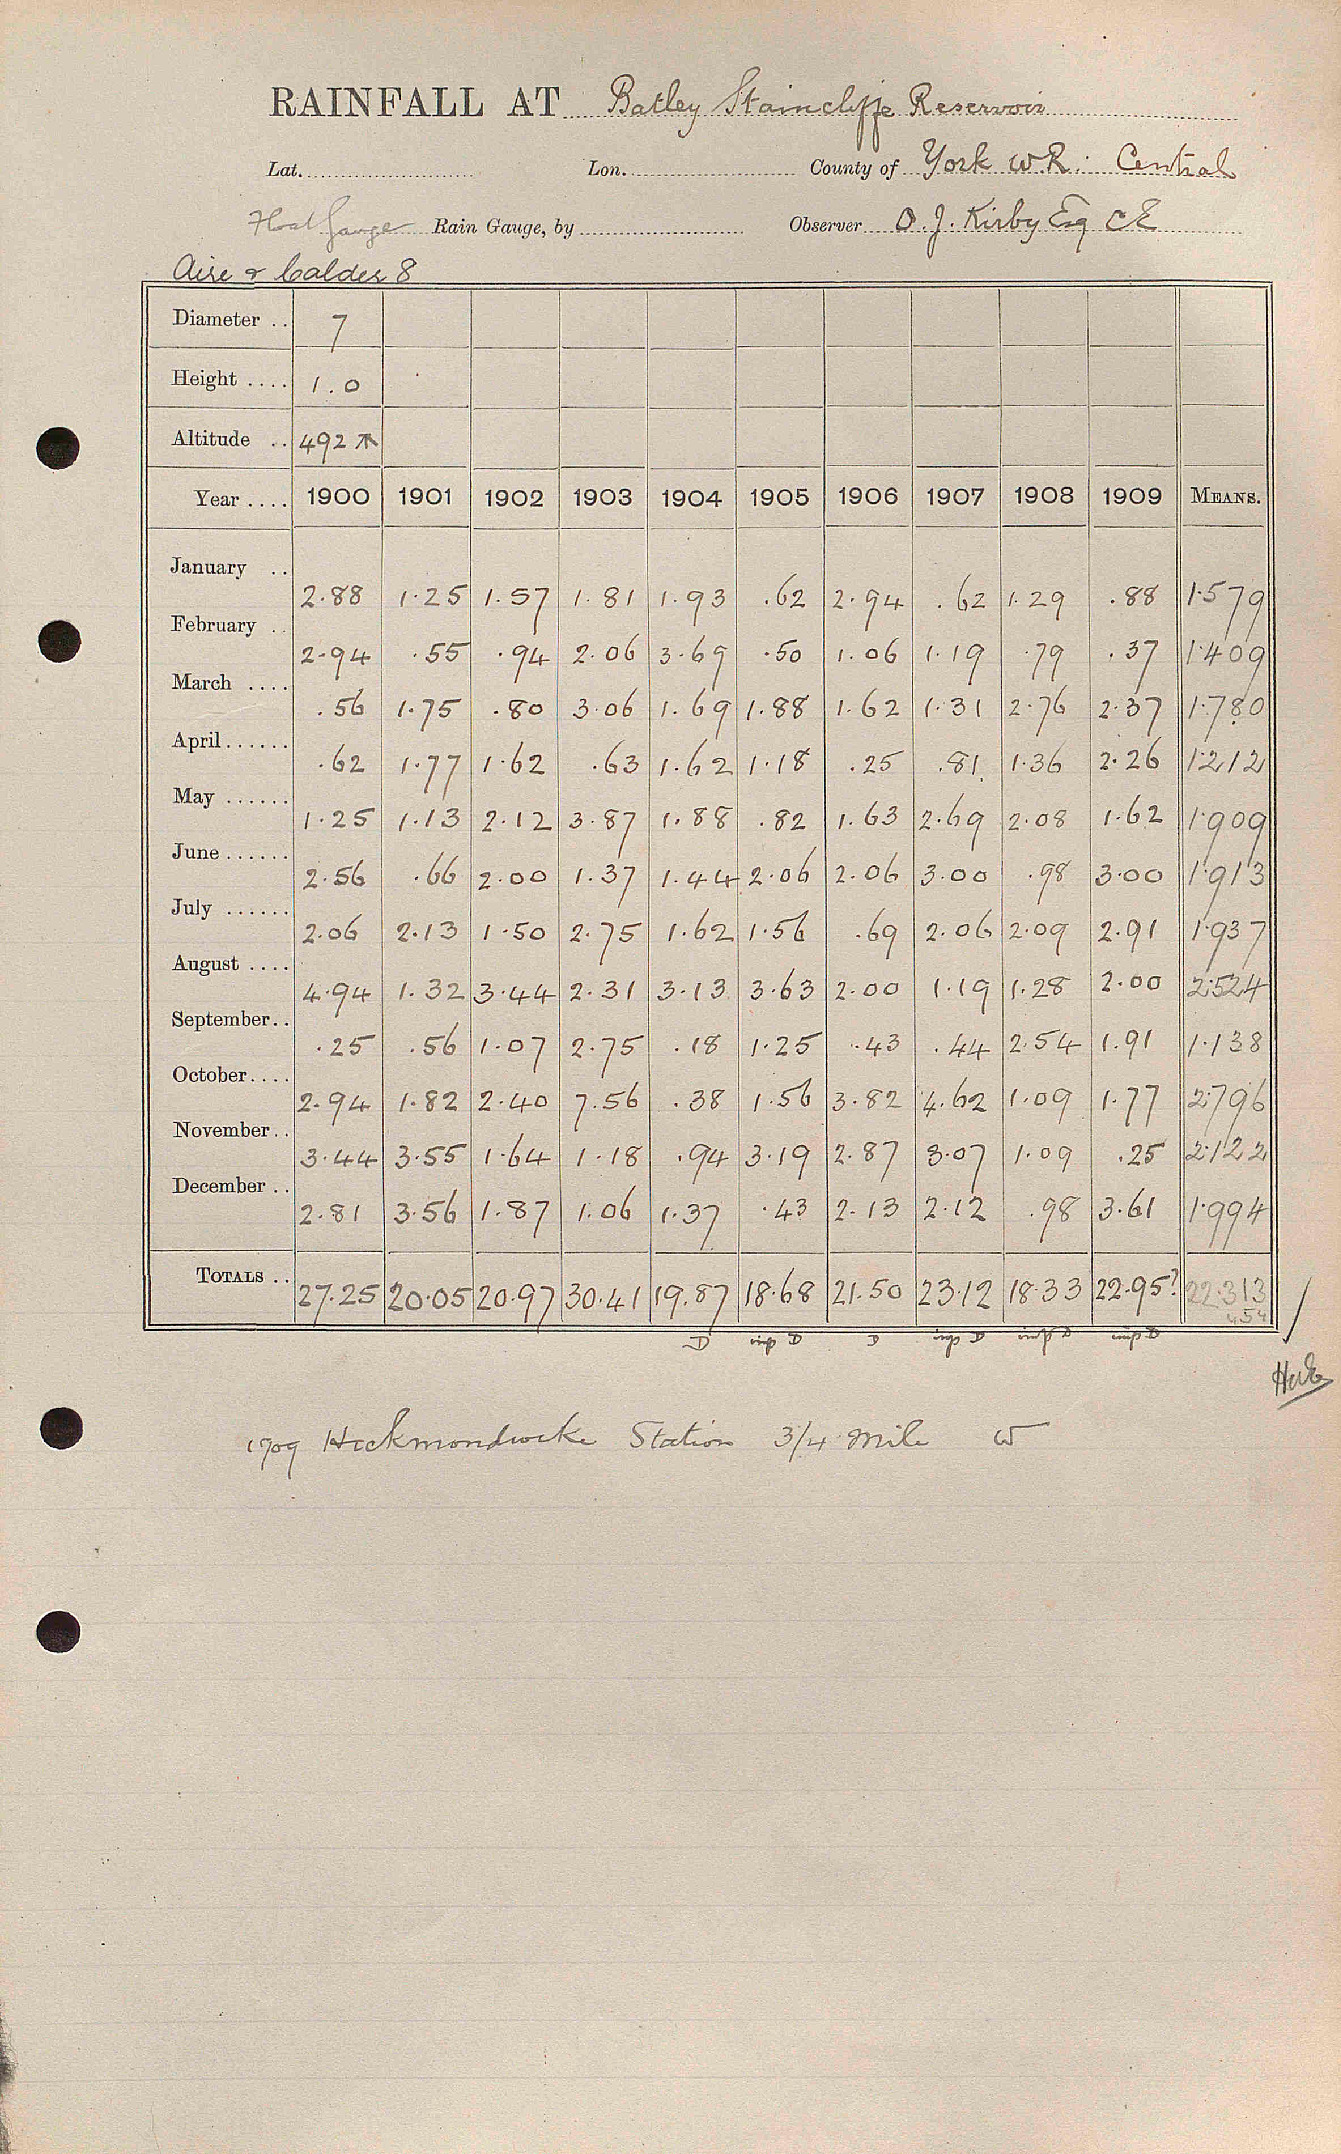 RAINFALL AT Batley Staincliffe Reservoir
Lat. Lon. County of York W.R: Central
Float Gauge Rain Gauge, by Observer O. J. Kirby Esq CE
Aire & Calder 8
Diameter .. 7
Height .... 1.0
Altitude .. 492
Year .... 1900 1901 1902 1903 1904 1905 1906 1907 1908 1909 MEANS.
January .. 2.88 1.25 1.57 1.81 1.93 .62 2.94 .62 1.29 .88 1.579
February .. 2.94 .55 .94 2.06 3.69 .50 1.06 1.19 .79 .37 1.409
March .... .56 1.75 .80 3.06 1.69 1.88 1.62 1.31 2.76 2.37 1.780
April...... .62 1.77 1.62 .63 1.62 1.18 .25 .81 1.36 2.26 1.212
May ...... 1.25 1.13 2.12 3.87 1.88 .82 1.63 2.69 2.08 1.62 1.909
June...... 2.56 .66 2.00 1.37 1.44 2.06 2.06 3.00 .98 3.00 1.913
July ...... 2.06 2.13 1.50 2.75 1.62 1.56 .69 2.06 2.09 2.91 1.937
August .... 4.94 1.32 3.44 2.31 3.13 3.63 2.00 1.19 1.28 2.00 2.524
September.. .25 .56 1.07 2.75 .18 1.25 .43 .44 2.54 1.91 1.138
October.... 2.94 1.82 2.40 7.56 .38 1.56 3.82 4.62 1.09 1.77 2.796
November.. 3.44 3.55 1.64 1.18 .94 3.19 2.87 3.07 1.09 .25 2.122
December .. 2.81 3.56 1.87 1.06 1.37 .43 2.13 2.12 .98 3.61 1.994
TOTALS .. 27.25 20.05 20.97 30.41 19.87 18.68 21.50 23.12 18.33 22.95? 22.313
1909 Heckmondwike Station 3/4 mile W